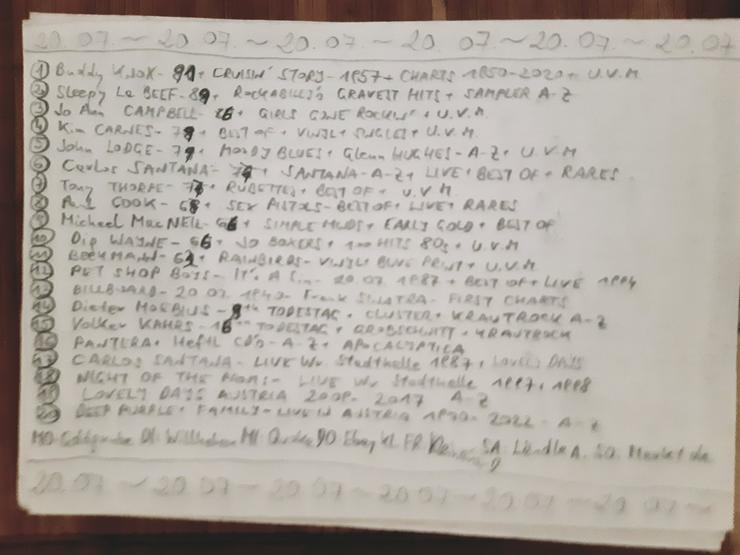 20.07.~20.07.~20.07.~20.07.~20.07.~20.07
① Buddy KNOX - 91 + CRUISIN' STORY - 1957 + CHARTS 1950-2020 + U.V.M
② Sleepy La BEEF - 89 + ROCKABILLY'S GRAVEST HITS + SAMPLER A-Z
③ Jo Ann CAMPBELL - 86 + GIRLS GONE ROCKIN' + U.V.M.
④ Kim CARNES - 79 + BEST OF + VINYL + SINGLES + U.V.M.
⑤ John LODGE - 79 + MOODY BLUES + Glenn HUGHES - A-Z + U.V.M
⑥ Carlos SANTANA - 77 + SANTANA - A-Z + LIVE + BEST OF + RARES
⑦ Tony THORPE - 77 + RUBETTES + BEST OF + U.V.M
⑧ Paul COOK - 68 + SEX PISTOLS - BEST OF + LIVE + RARES
⑨ Michael MacNEIL - 66 + SIMPLE MINDS + EARLY GOLD + BEST OF
⑩ Dig WAYNE - 66 + JO BOXERS + 100 HITS 80s + U.V.M
⑪ BECKMANN - 62 + RAINBIRDS - VINYL BLUE PRINT + U.V.M
⑫ PET SHOP BOYS - It's A Sin - 20.07. 1987 + BEST OF + LIVE 1994
⑬ BILLBOARD - 20.07. 1940 - Frank SINATRA - FIRST CHARTS
⑭ Dieter MOEBIUS - TODESTAG + CLUSTER + KRAUTROCK A-Z
⑮ Volker KAHRS - 16 TODESTAG + GROBSCHNITT + KRAUTROCK
⑯ PANTERA + Heftl CD's - A-Z + APOCALYPTICA
⑰ CARLOS SANTANA - LIVE Wr. Stadthalle 1987 + LOVELY DAYS
⑱ NIGHT OF THE PROMS - LIVE Wr Stadthalle 1997 + 1998
⑲ LOVELY DAYS AUSTRIA 2008 - 2017 A-Z
⑳ DEEP PURPLE + FAMILY - LIVE IN AUSTRIA 1970 - 2022 - A-Z
MO DI MI DO Ebay FR SA Ländle A. SO.
20.07 ~ 20.07 ~ 20.07 ~ 20.07 ~ 20.07 ~ 20.07 ~